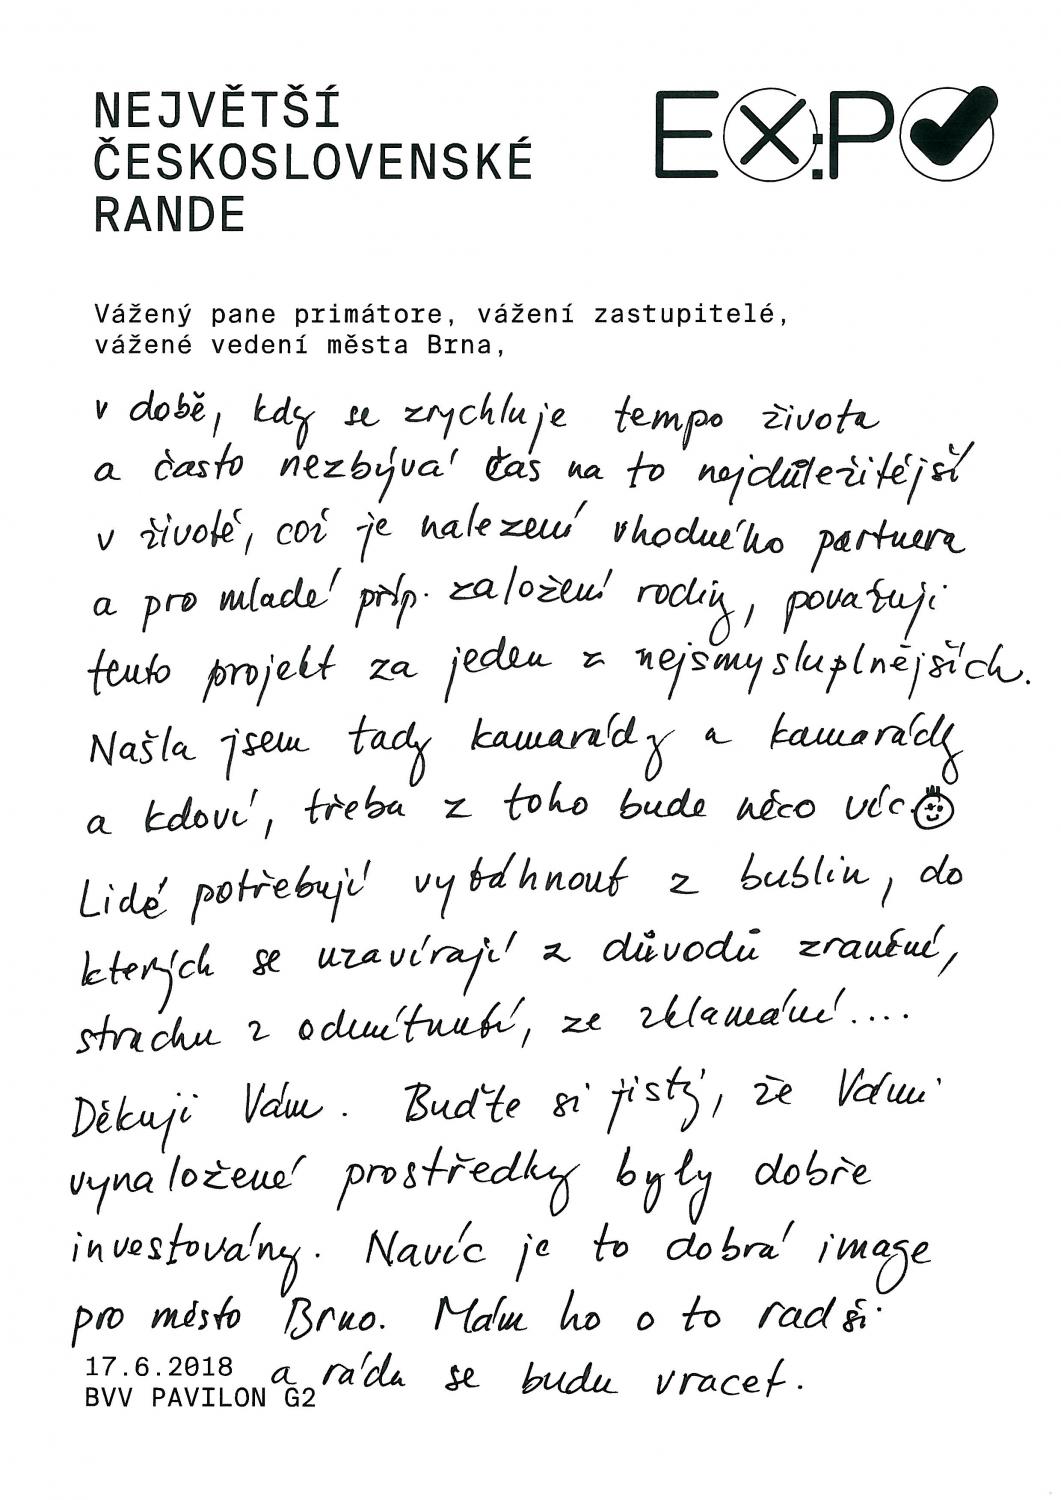 NEJVĚTŠÍ
ČESKOSLOVENSKÉ
RANDE
EX:PO
Vážený pane primátore, vážení zastupitelé,
vážené vedení města Brna,
v době, kdy se zrychluje tempo života
a často nezbývá čas na to nejdůležitější
v životě, což je nalezení vhodného partnera
a pro mladé příp. založení rodiny, považuji
tento projekt za jeden z nejsmysluplnějších.
Našla jsem tady kamarády a kamarádky
a kdoví, třeba z toho bude něco víc
Lidé potřebují vytáhnout z bublin, do
kterých se uzavírají z důvodů zranění,
strachu z odmítnutí, ze zklamání....
Děkuji Vám. Buďte si jistý, že Vámi
vynaložené prostředky byly dobře
investovány. Navíc je to dobrá image
pro město Brno. Mám ho o to radši
a ráda se budu vracet.
17.6.2018
BVV PAVILON G2